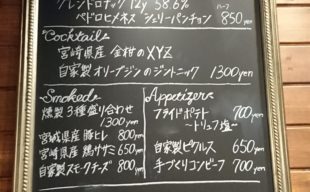 グレンドロナック 12y 58.6%
ペドロヒメネス シェリーパンチョン ハーフ 850yen
Cocktail
宮崎県産 金柑のXYZ
自家製オリーブジンのジントニック 1300yen
Smoked
燻製3種盛り合わせ
1300yen
宮城県産 豚ヒレ 800yen
宮崎県産 鶏ササミ 650yen
自家製スモークチーズ 800yen
Appetizer
フライドポテト 700yen
〜トリュフ塩〜
自家製ピクルス 650yen
手づくりコンビーフ 700yen